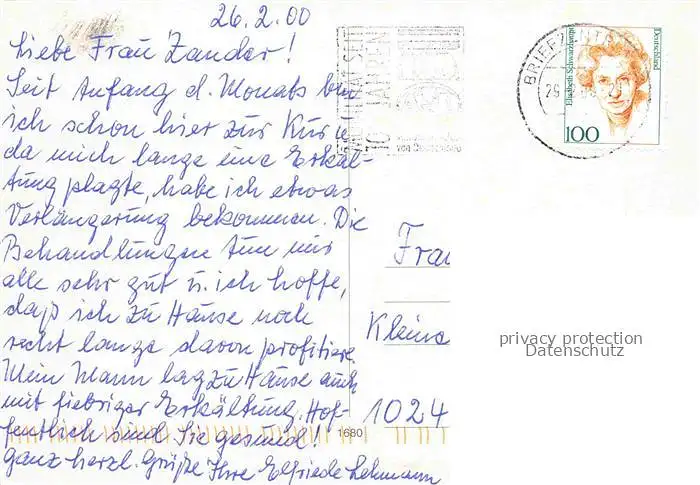 26.2.00
Liebe Frau Zander!
Seit Anfang d. Monats bin
ich schon hier zur Kur u.
da mich lange eine Erkäl-
tung plagte, habe ich etwas
Verlängerung bekommen. Die
Behandlungen tun mir
alle sehr gut u. ich hoffe,
daß ich zu Hause noch
recht lange davon profitiere.
Mein Mann lag zu Hause auch
mit fiebriger Erkältung. Hof-
fentlich sind Sie gesund!
Ganz herzl. Grüße Ihre Elfriede Lehmann
SEIT
10 JAHREN
BRIEFZENTR
29
Elisabeth Schwarzhaupt
Deutschland
100
Frau
Kleine
1024
1680
privacy protection
Datenschutz